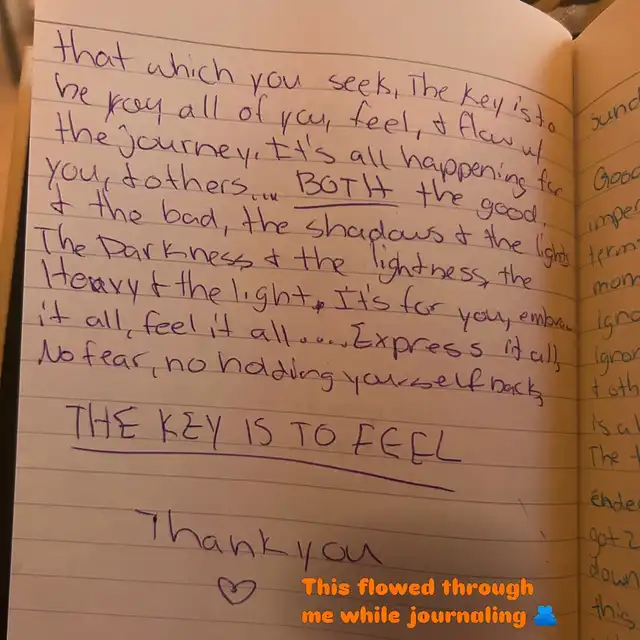 that which you seek, The key is to
be you all of you, feel, & flow w/
the journey. It's all happening for
you, & others.... BOTH the good
& the bad, the shadows & the lights
The Darkness & the lightness, the
Heavy & the light. It's for you, embrace
it all, feel it all..... Express it all,
No fear, no holding yourself back,
THE KEY IS TO FEEL
Thank you
This flowed through
me while journaling
Good
imper
term
mom
igno
ignor
& oth
is al
The t
ende
got 2
down
this